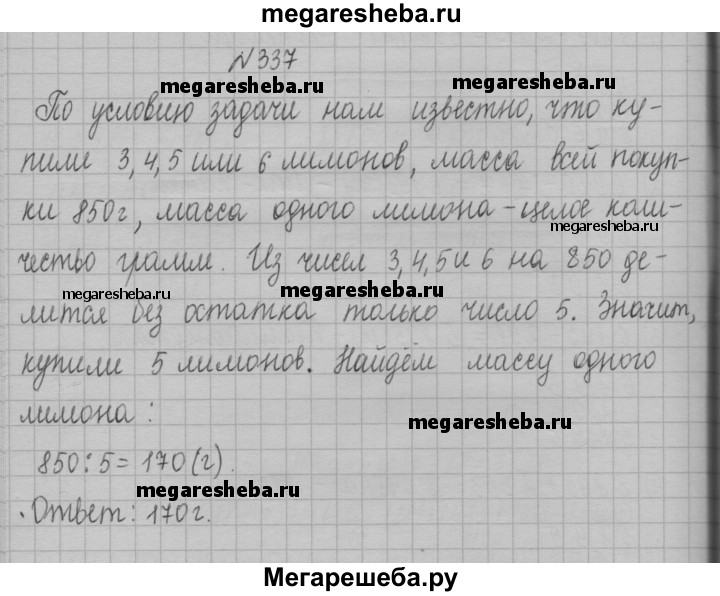 megaresheba.ru
№337
megaresheba.ru
megaresheba.ru
По условию задачи нам известно, что ку-
пили 3,4,5 или 6 лимонов, масса всей покуп-
ки 850г, масса одного лимона - целое коли-
megaresheba.ru
чество грамм. Из чисел 3,4,5 и 6 на 850 де-
megaresheba.ru
megaresheba.ru
лится без остатка только число 5. Значит,
купили 5 лимонов. Найдём массу одного
лимона:
megaresheba.ru
850:5=170(г).
megaresheba.ru
Ответ: 170г.
Мегарешеба.ру